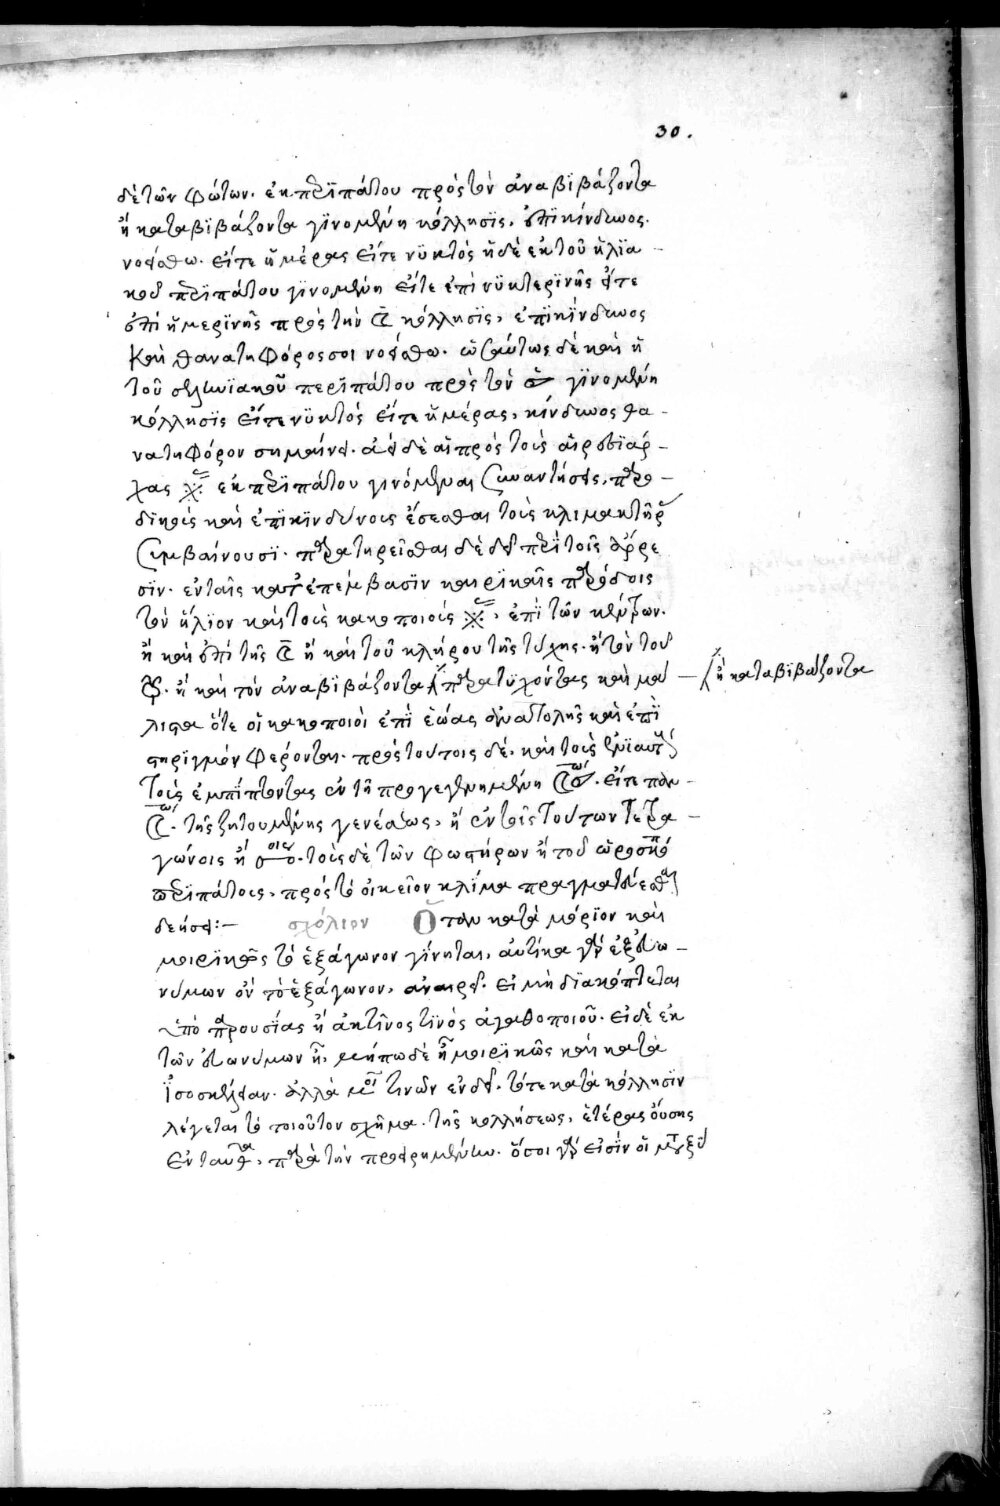 30.
δὲ τῶν φώτων. ἐκ περϊπάτου πρὸς τὸν ἀναβϊβάζοντα
ἢ καταβϊβάζοντα γϊνομένη κόλλησϊς, ἐπϊκίνδυνος
νοείσθω. εἴτε ἡμέρας εἴτε νϋκτὸς ἡ δὲ ἐκ τοῦ ἡλϊα-
κοῦ περϊπάτου γϊνομένη εἴτε ἐπὶ νϋκτερϊνῆς εἴτε
ἐπὶ ἡμερϊνῆς πρὸς τὴν ☾ κόλλησϊς, ἐπϊκίνδυνος
καὶ θανατηφόρος σοι νοείσθω. ὡσαύτως δὲ καὶ ἡ
τοῦ σεληνϊακοῦ περϊπάτου πρὸς τὸν γϊνομένη
κόλλησϊς εἴτε νϋκτὸς εἴτε ἡμέρας, κίνδυνος θα-
νατηφόρον σημαίνει. ἀεὶ δὲ αἱ πρὸς τοὺς αἱρεσϊάρ-
χας ἐκ περϊπάτου γινόμεναι συναντήσεις,
καὶ ἐπϊκϊνδύνοις ἔσεσθαι τοὺς κλιμακτῆρ
συμβαίνουσϊ. παρατηρεῖσθαι δὲ δεῖ
σϊν. ἐν ταῖς κατ' ἐπέμβασϊν καιρϊκαῖς παρόδοις
τὸν ἥλϊον καὶ τοὺς κακοποιοὺς, ἐπϊ τῶν κέντρων.
ἢ καὶ ἐπὶ τῆς ☾ ἢ καὶ τοῦ κλήρου τῆς τύχης. ἢ τὸν τοῦ
ἢ καὶ τὸν ἀναβϊβάζοντα παρατϋχόντας καὶ μά-
ἢ καταβϊβάζοντα
λιστα ὅτε οἱ κακοποιοὶ ἐπϊ ἑώας ἀνατολῆς καὶ ἐπϊ
στηρϊγμὸν φέρονται. πρὸς τούτοις δὲ, καὶ τοὺς ἐνϊαυτ
τοὺς ἐμπϊπτοντας ἐν τῇ προγεγενημένη εἴτε παν-
τῆς ζητουμένης γενέσεως, ἢ ἐν τοῖς τούτων τετρα-
γώνοις ἢ τοὺς δὲ τῶν φωστήρων ἢ τοῦ ὡροσκόπου
περϊπάτους, πρὸς τὸ οἰκεῖον κλίμα πραγματεύεσθαι
δεήσει:- σχόλιον Ὅταν κατὰ μόρϊον καὶ
μοιρϊκῶς τὸ ἑξάγωνον γίνηται, αὐτίκα γὰρ ἐξ εὐω-
νύμων ὂν τὸ ἑξάγωνον, ἀναιρεῖ. εἰ μὴ διακόπτεται
ὑπὸ παρουσίας ἢ ἀκτῖνος τϊνὸς ἀγαθοποιοῦ. εἰ δὲ ἐκ
τῶν εὐωνύμων ᾖ, μήπω δὲ ᾖ μοιρϊκῶς καὶ κατὰ
ἰσοσκέλειαν. ἀλλὰ τινῶν ἐνδεῖ. τότε κατὰ κόλλησϊν
λέγεται τὸ τοιοῦτον σχῆμα. τῆς κολλήσεως, ἑτέρας οὔσης
ἐνταῦθα, παρὰ τὴν προειρημένην. ὅσοι γὰρ εἰσὶν οἱ μεταξὺ